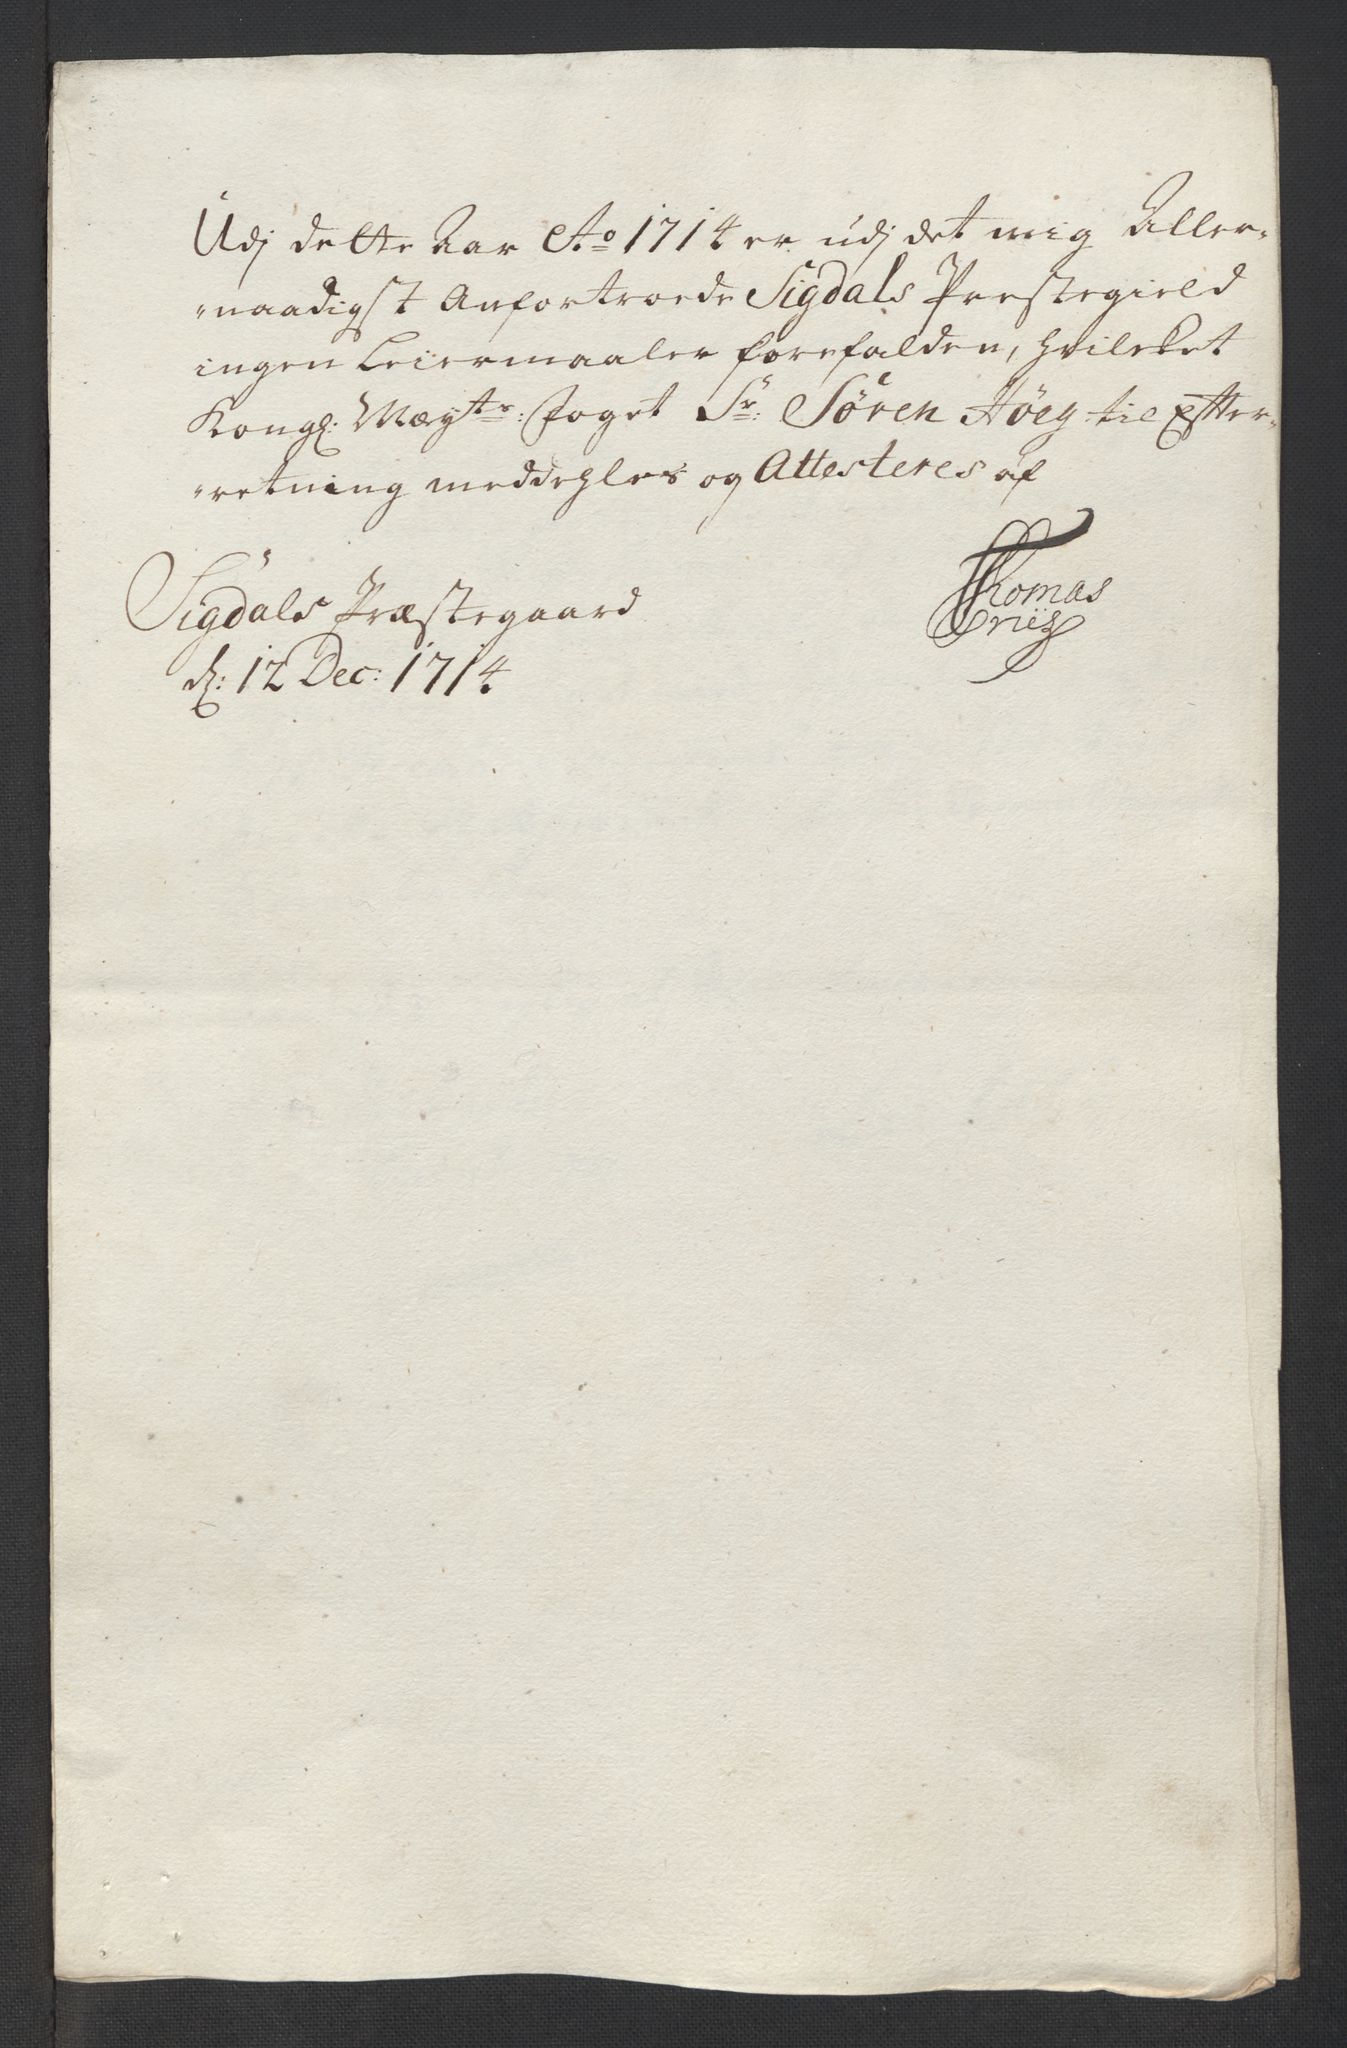 Udj dette Aar Ao 1714 er udj det mig Aller-
naadigst Anfortroede Sigdals Prestegield
ingen Leiermaaler forefalden, hvilcket
Kongl: Mayts: Foget Sr: Sören Höeg til Effter-
retning meddehles og Attesteres af
Thomas
Sigdals Præstegaard
d: 12 Dec: 1714